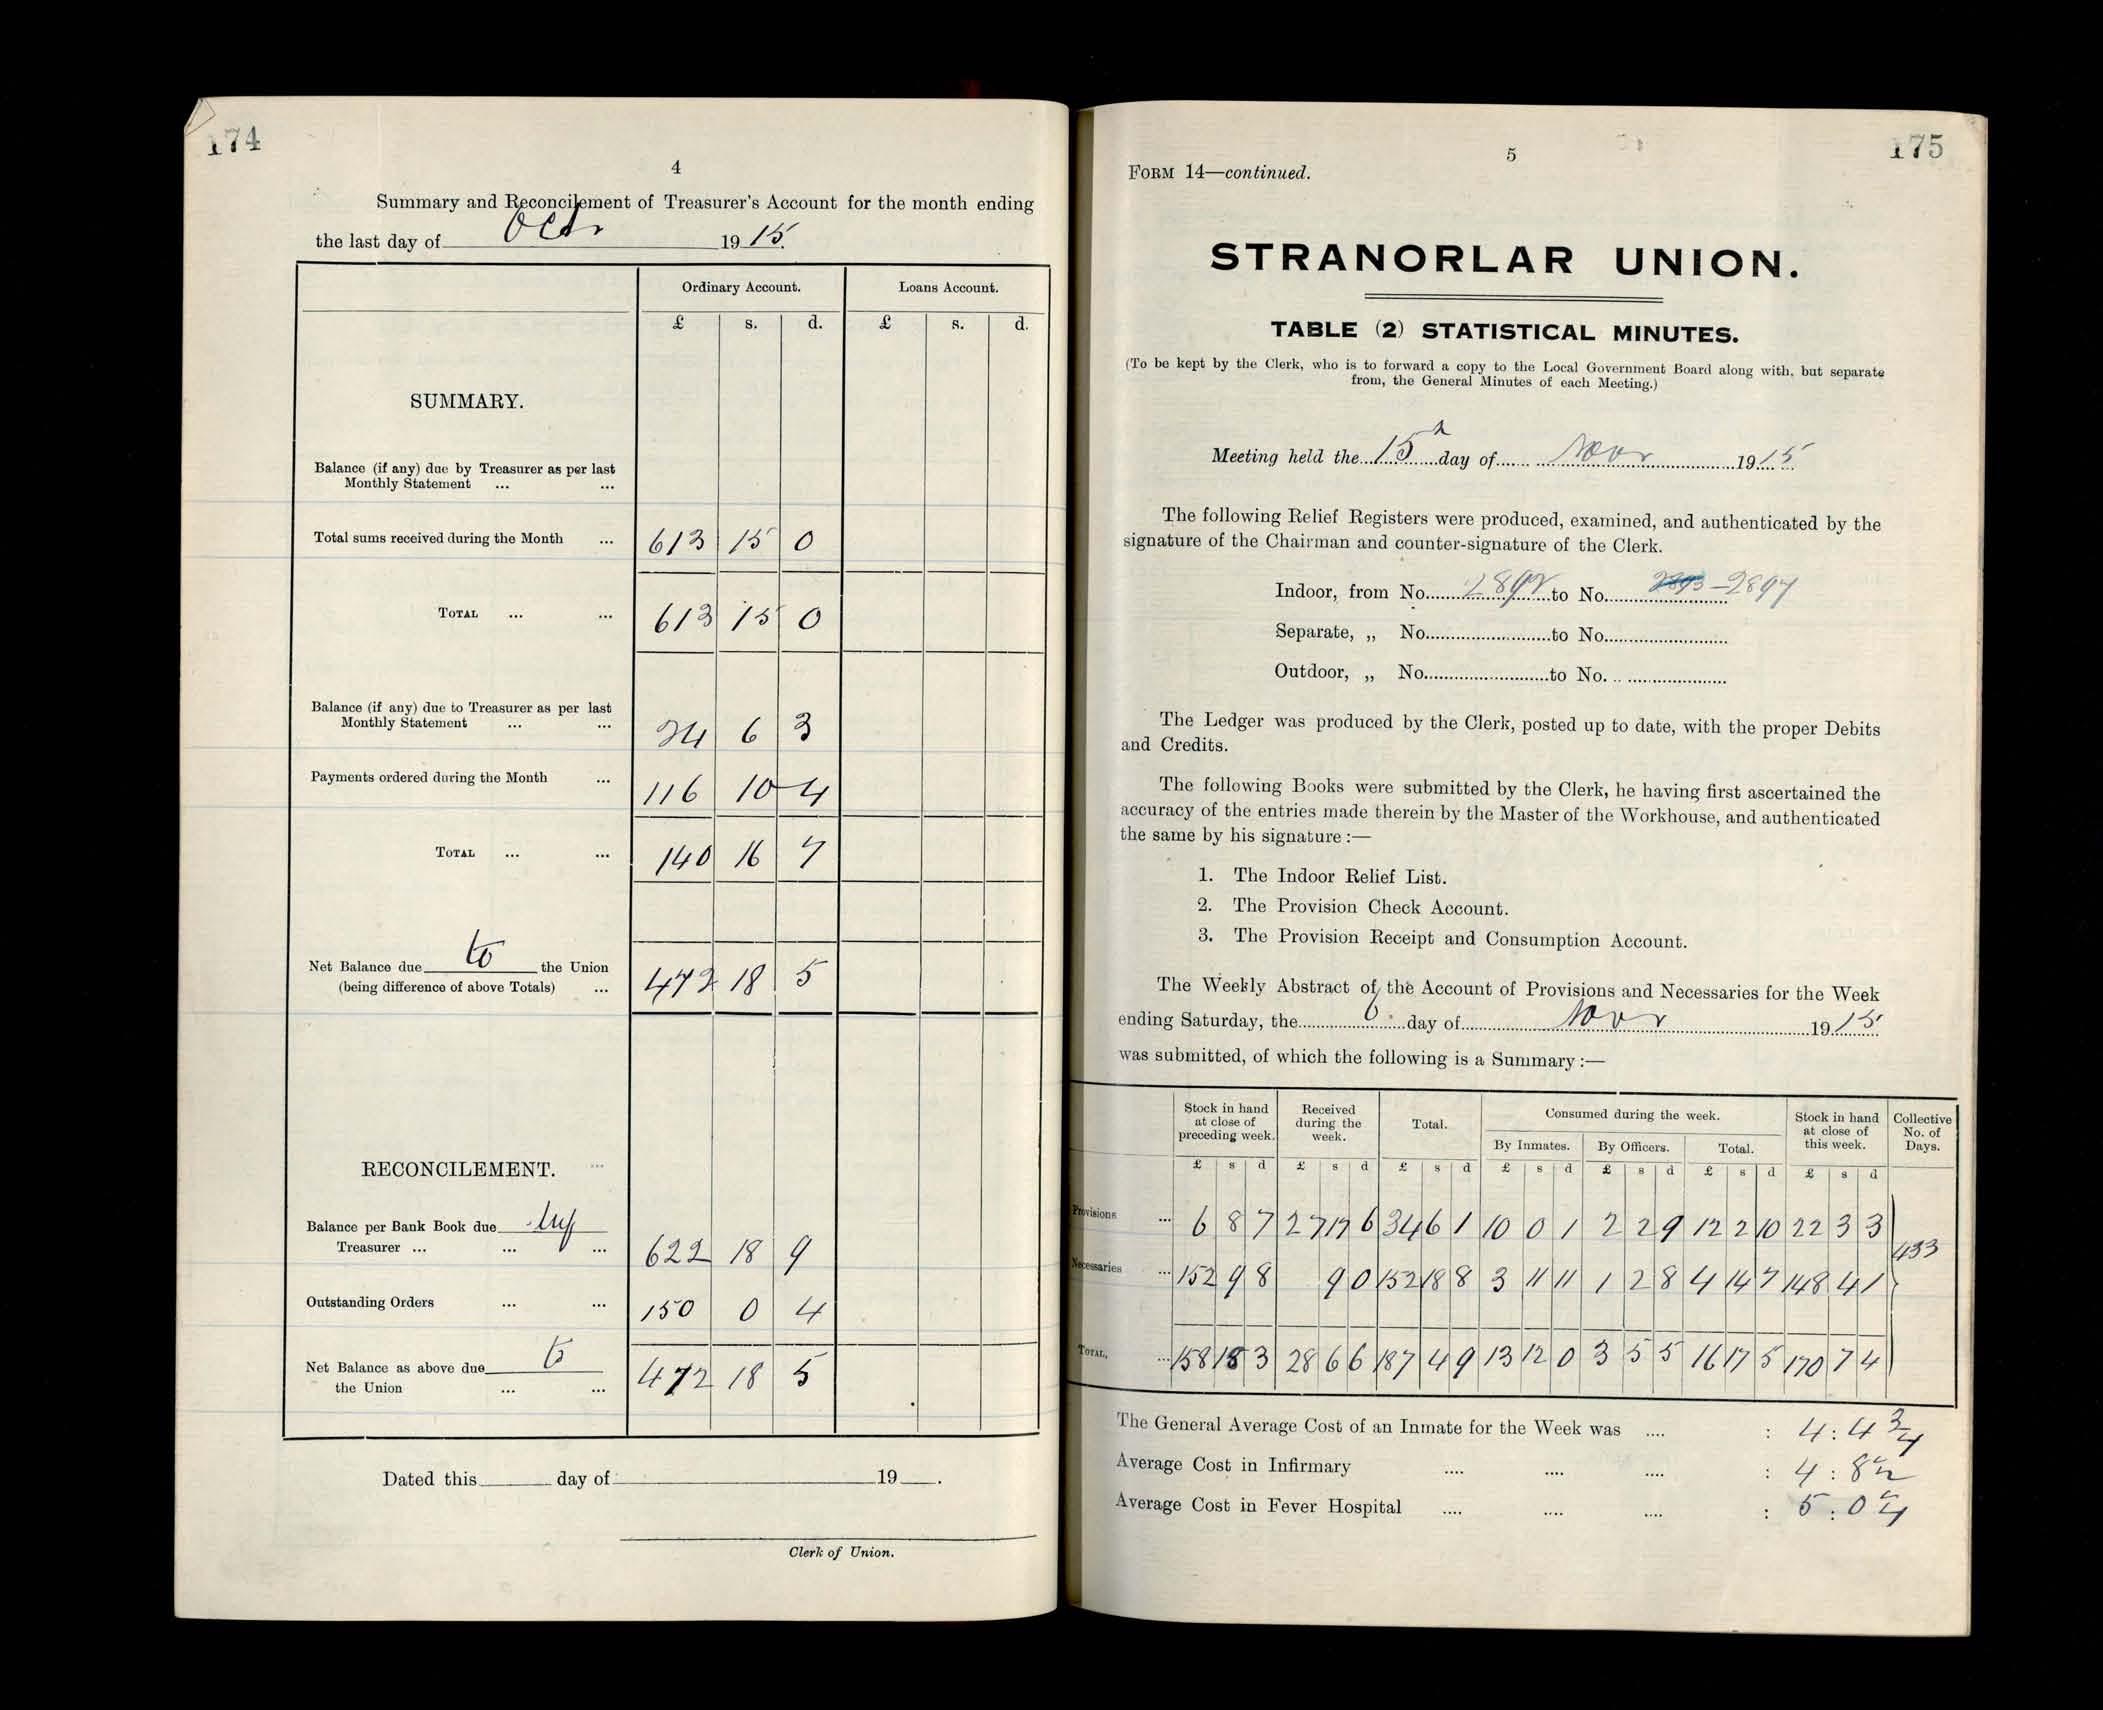 174
4
Summary and Reconcilement of Treasurer's Account for the month ending
the last day of Octr 1915.
Ordinary Account. Loans Account.
£ s. d. £ s. d.
SUMMARY.
Balance (if any) due by Treasurer as per last
Monthly Statement ... ...
Total sums received during the Month ... 613 15 0
TOTAL ... ... 613 15 0
Balance (if any) due to Treasurer as per last
Monthly Statement ... ... 24 6 3
Payments ordered during the Month ... 116 10 4
TOTAL ... ... 140 16 7
Net Balance due to the Union
(being difference of above Totals) ... 472 18 5
RECONCILEMENT. ...
Balance per Bank Book due by
Treasurer ... ... ... 622 18 9
Outstanding Orders ... ... 150 0 4
Net Balance as above due to
the Union ... ... 472 18 5
Dated this day of 19 .
Clerk of Union.
175
5
FORM 14—continued.
STRANORLAR UNION.
TABLE (2) STATISTICAL MINUTES.
(To be kept by the Clerk, who is to forward a copy to the Local Government Board along with, but separate
from, the General Minutes of each Meeting.)
Meeting held the 15h day of Novr 1915
The following Relief Registers were produced, examined, and authenticated by the
signature of the Chairman and counter-signature of the Clerk.
Indoor, from No. 2892 to No. 2893 – 2897
Separate, „ No. to No.
Outdoor, „ No. to No.
The Ledger was produced by the Clerk, posted up to date, with the proper Debits
and Credits.
The following Books were submitted by the Clerk, he having first ascertained the
accuracy of the entries made therein by the Master of the Workhouse, and authenticated
the same by his signature :—
1. The Indoor Relief List.
2. The Provision Check Account.
3. The Provision Receipt and Consumption Account.
The Weekly Abstract of the Account of Provisions and Necessaries for the Week
ending Saturday, the 6 day of Novr 1915
was submitted, of which the following is a Summary :—
Stock in hand at close of preceding week. Received during the week. Total. Consumed during the week. Stock in hand at close of this week. Collective No. of Days.
By Inmates. By Officers. Total.
£ s d £ s d £ s d £ s d £ s d £ s d £ s d
Provisions ... 6 8 7 27 17 6 34 6 1 10 0 1 2 2 9 12 2 10 22 3 3
433
Necessaries ... 152 9 8 9 0 152 18 8 3 11 11 1 2 8 4 14 7 148 4 1
TOTAL, ... 158 18 3 28 6 6 187 4 9 13 12 0 3 5 5 16 17 5 170 7 4
The General Average Cost of an Inmate for the Week was .... : 4 : 4 3/4
Average Cost in Infirmary .... .... .... : 4 : 8 1/2
Average Cost in Fever Hospital .... .... .... : 5 : 0 1/4